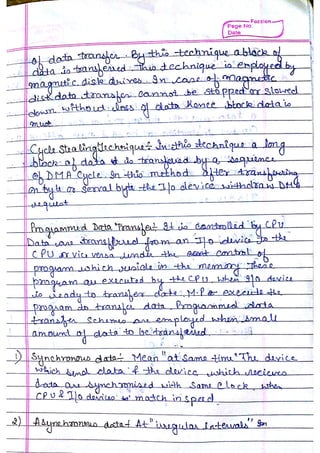 Page No.
Date
of data transfer. By this technique a block of
data is transferred. This technique is employed by
magnetic disk drives. In case of magnetic
disk data transfer cannot be stopped or slowed
down without loss of data Hence block data is
must.
Cycle Stealing Technique:- In this technique a long
block of data is transfered by a sequence
of DMA Cycle. In this method after transfering
on byte or serval byte the I/o device withdraw DMA
request
Programmed Data Transfer:- It is controlled by CPU
Data are transferred from an I/o device to the
CPU or vice versa under the control of
program which reside in the memory These
program are executed by the CPU when I/o device
is ready to transfer data M.P execute the
program to transfer data Programmed data
transfer Schemes are employed when small
amount of data to be transferred.
1) Synchronous data:- Mean "at same time" The device
which send data & the device which recieves
data are synchronized with same clock, when
CPU & I/o devices match in speed.
2) Asynchronous data:- At "irregular Intervals" In